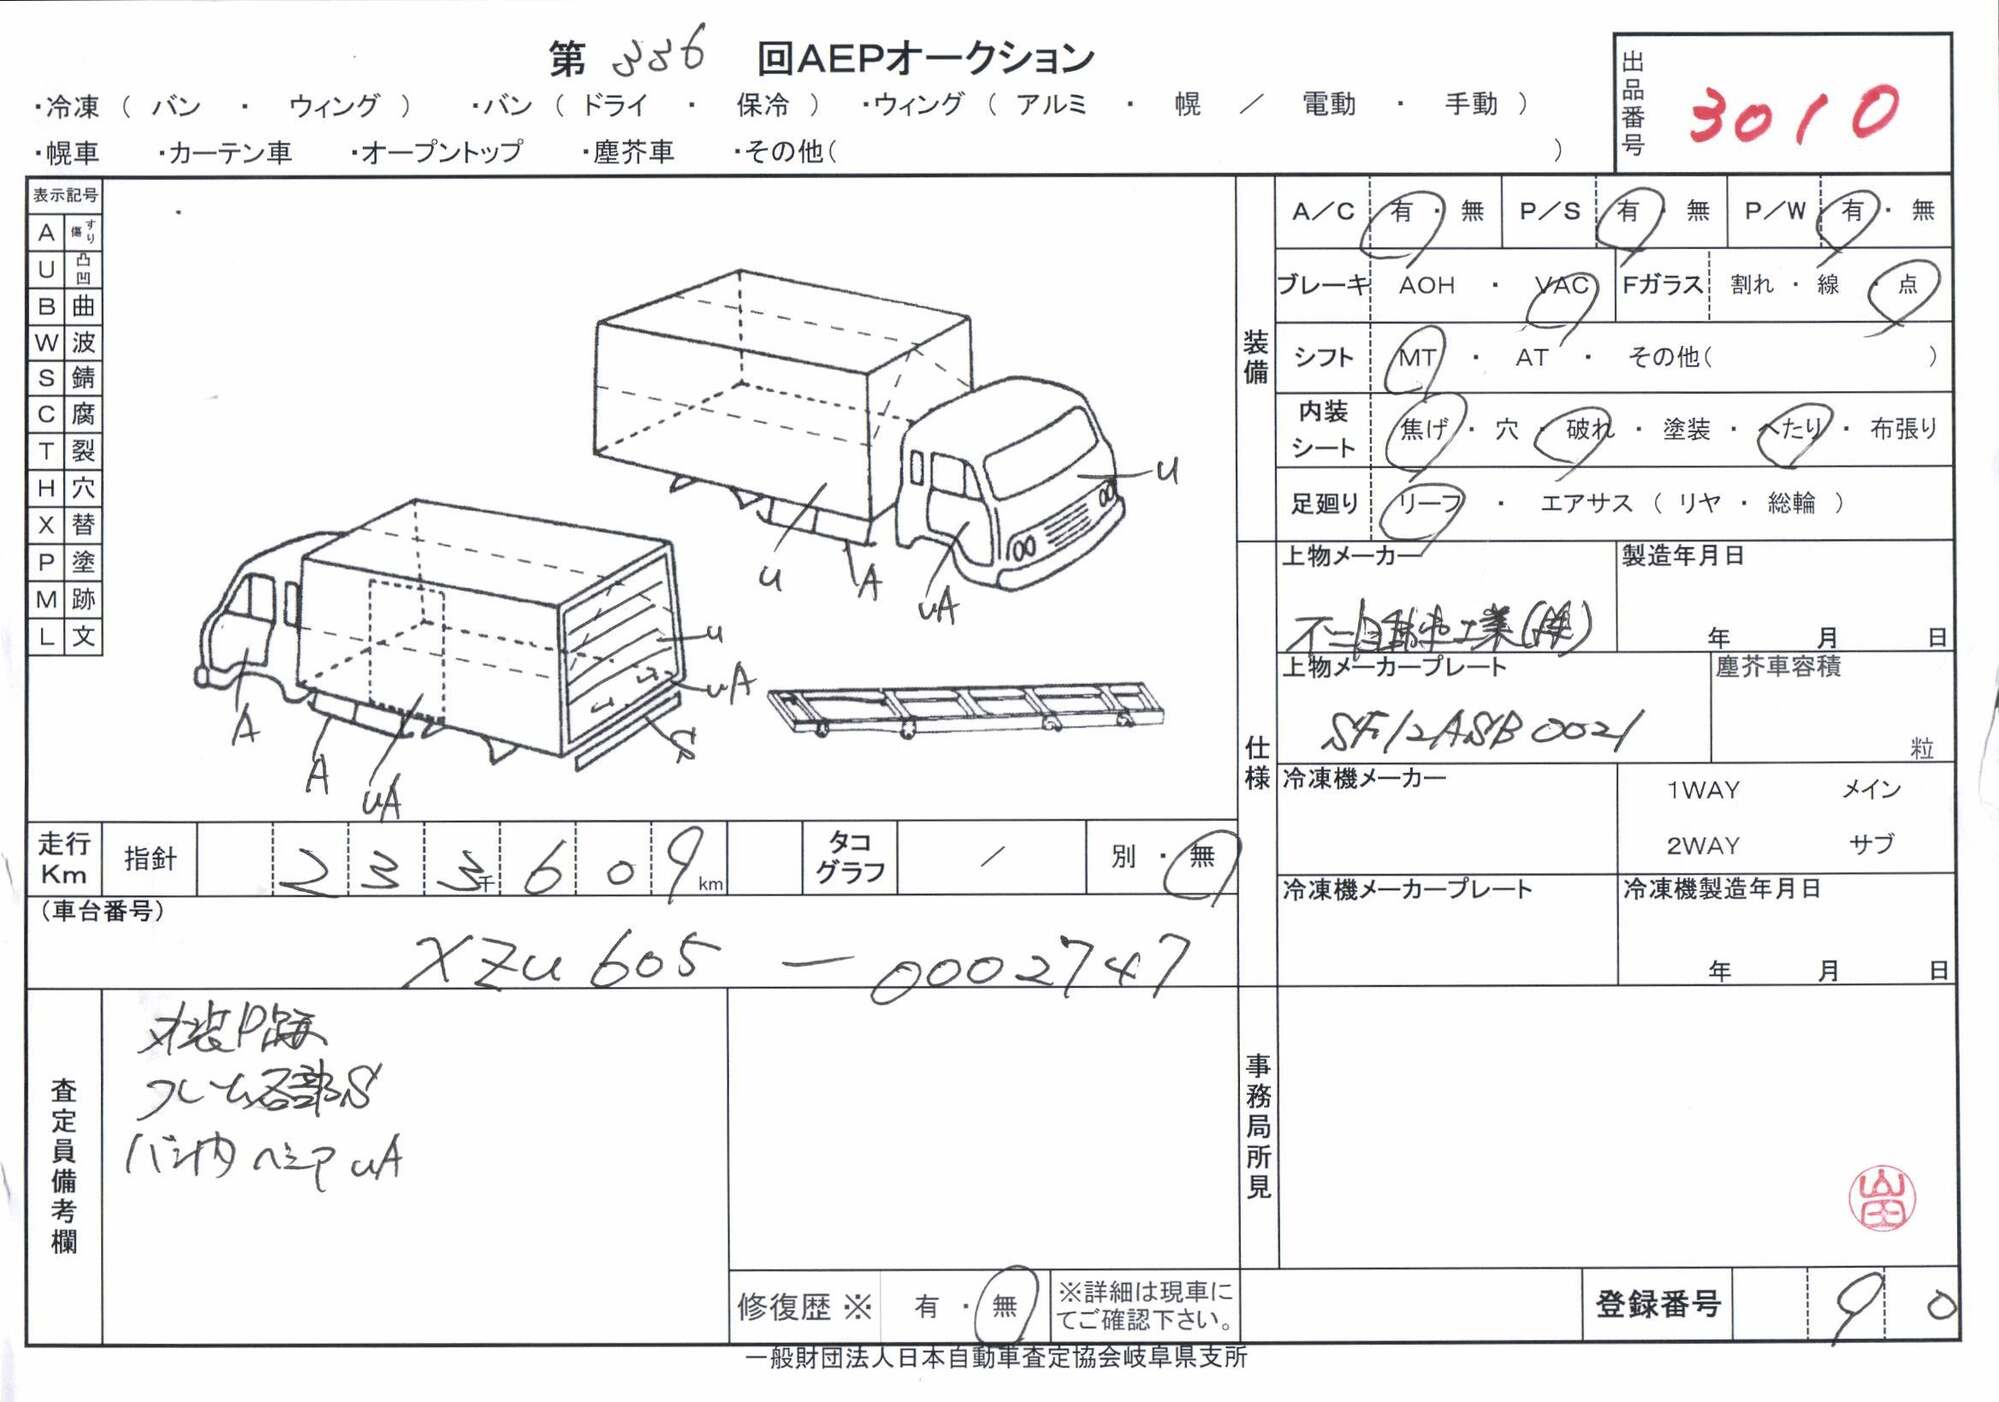 第 336 回AEPオークション
・冷凍 ( バン ・ ウィング ) ・バン ( ドライ ・ 保冷 ) ・ウィング ( アルミ ・ 幌 / 電動 ・ 手動 )
・幌車 ・カーテン車 ・オープントップ ・塵芥車 ・その他( )
出品番号 3010
表示記号
A すり傷
U 凸凹
B 曲
W 波
S 錆
C 腐
T 裂
H 穴
X 替
P 塗
M 跡
L 文
U
U A UA
U
UA
S
A
A
UA
装備
A/C 有 ・ 無 P/S 有 ・ 無 P/W 有 ・ 無
ブレーキ AOH ・ VAC Fガラス 割れ ・ 線 ・ 点
シフト MT ・ AT ・ その他( )
内装シート 焦げ ・ 穴 ・ 破れ ・ 塗装 ・ へたり ・ 布張り
足廻り リーフ ・ エアサス ( リヤ ・ 総輪 )
仕様
上物メーカー 製造年月日
不二自動車工業(株) 年 月 日
上物メーカープレート 塵芥車容積
SF12ASB0021 粒
冷凍機メーカー 1WAY メイン
2WAY サブ
冷凍機メーカープレート 冷凍機製造年月日
年 月 日
走行Km 指針 233千609km タコグラフ / 別 ・ 無
(車台番号)
XZU605-0002747
査定員備考欄
内装P跡
フレーム各部S
バン内 ベニヤ UA
事務局所見
修復歴 ※ 有 ・ 無 ※詳細は現車にてご確認下さい。
登録番号 90
一般財団法人日本自動車査定協会岐阜県支所